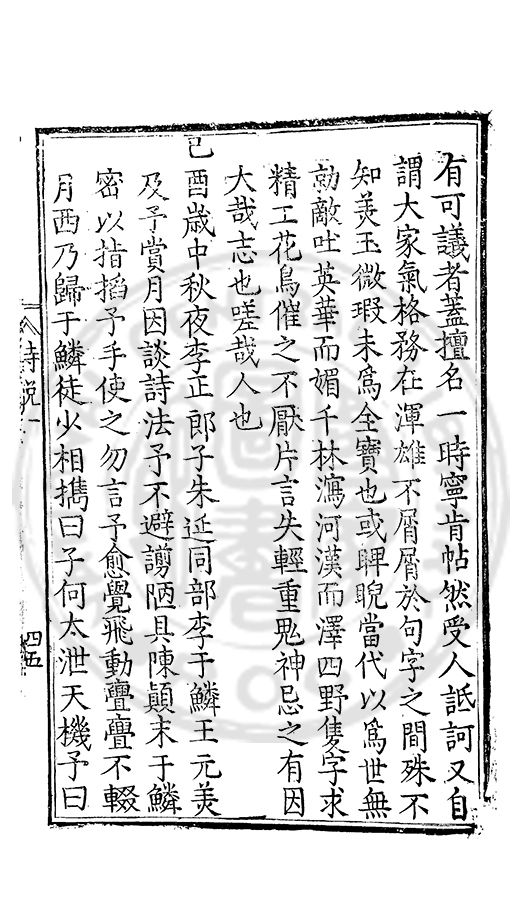 有可議者蓋擅名一時寧肯帖然受人詆訶又自
謂大家氣格務在渾雄不屑屑於句字之間殊不
知美玉微瑕未為全寶也或睥睨當代以為世無
勍敵吐英華而媚千林瀉河漢而澤四野隻字求
精工花鳥催之不厭片言失輕重鬼神忌之有因
大哉志也嗟哉人也
己酉歲中秋夜李正郎子朱延同部李于鱗王元美
及予賞月因談詩法予不避謭陋具陳顛末于鱗
密以指搯予手使之勿言予愈覺飛動亹亹不輟
月西乃歸于鱗徒步相攜曰子何太泄天機予曰
詩說一
四五